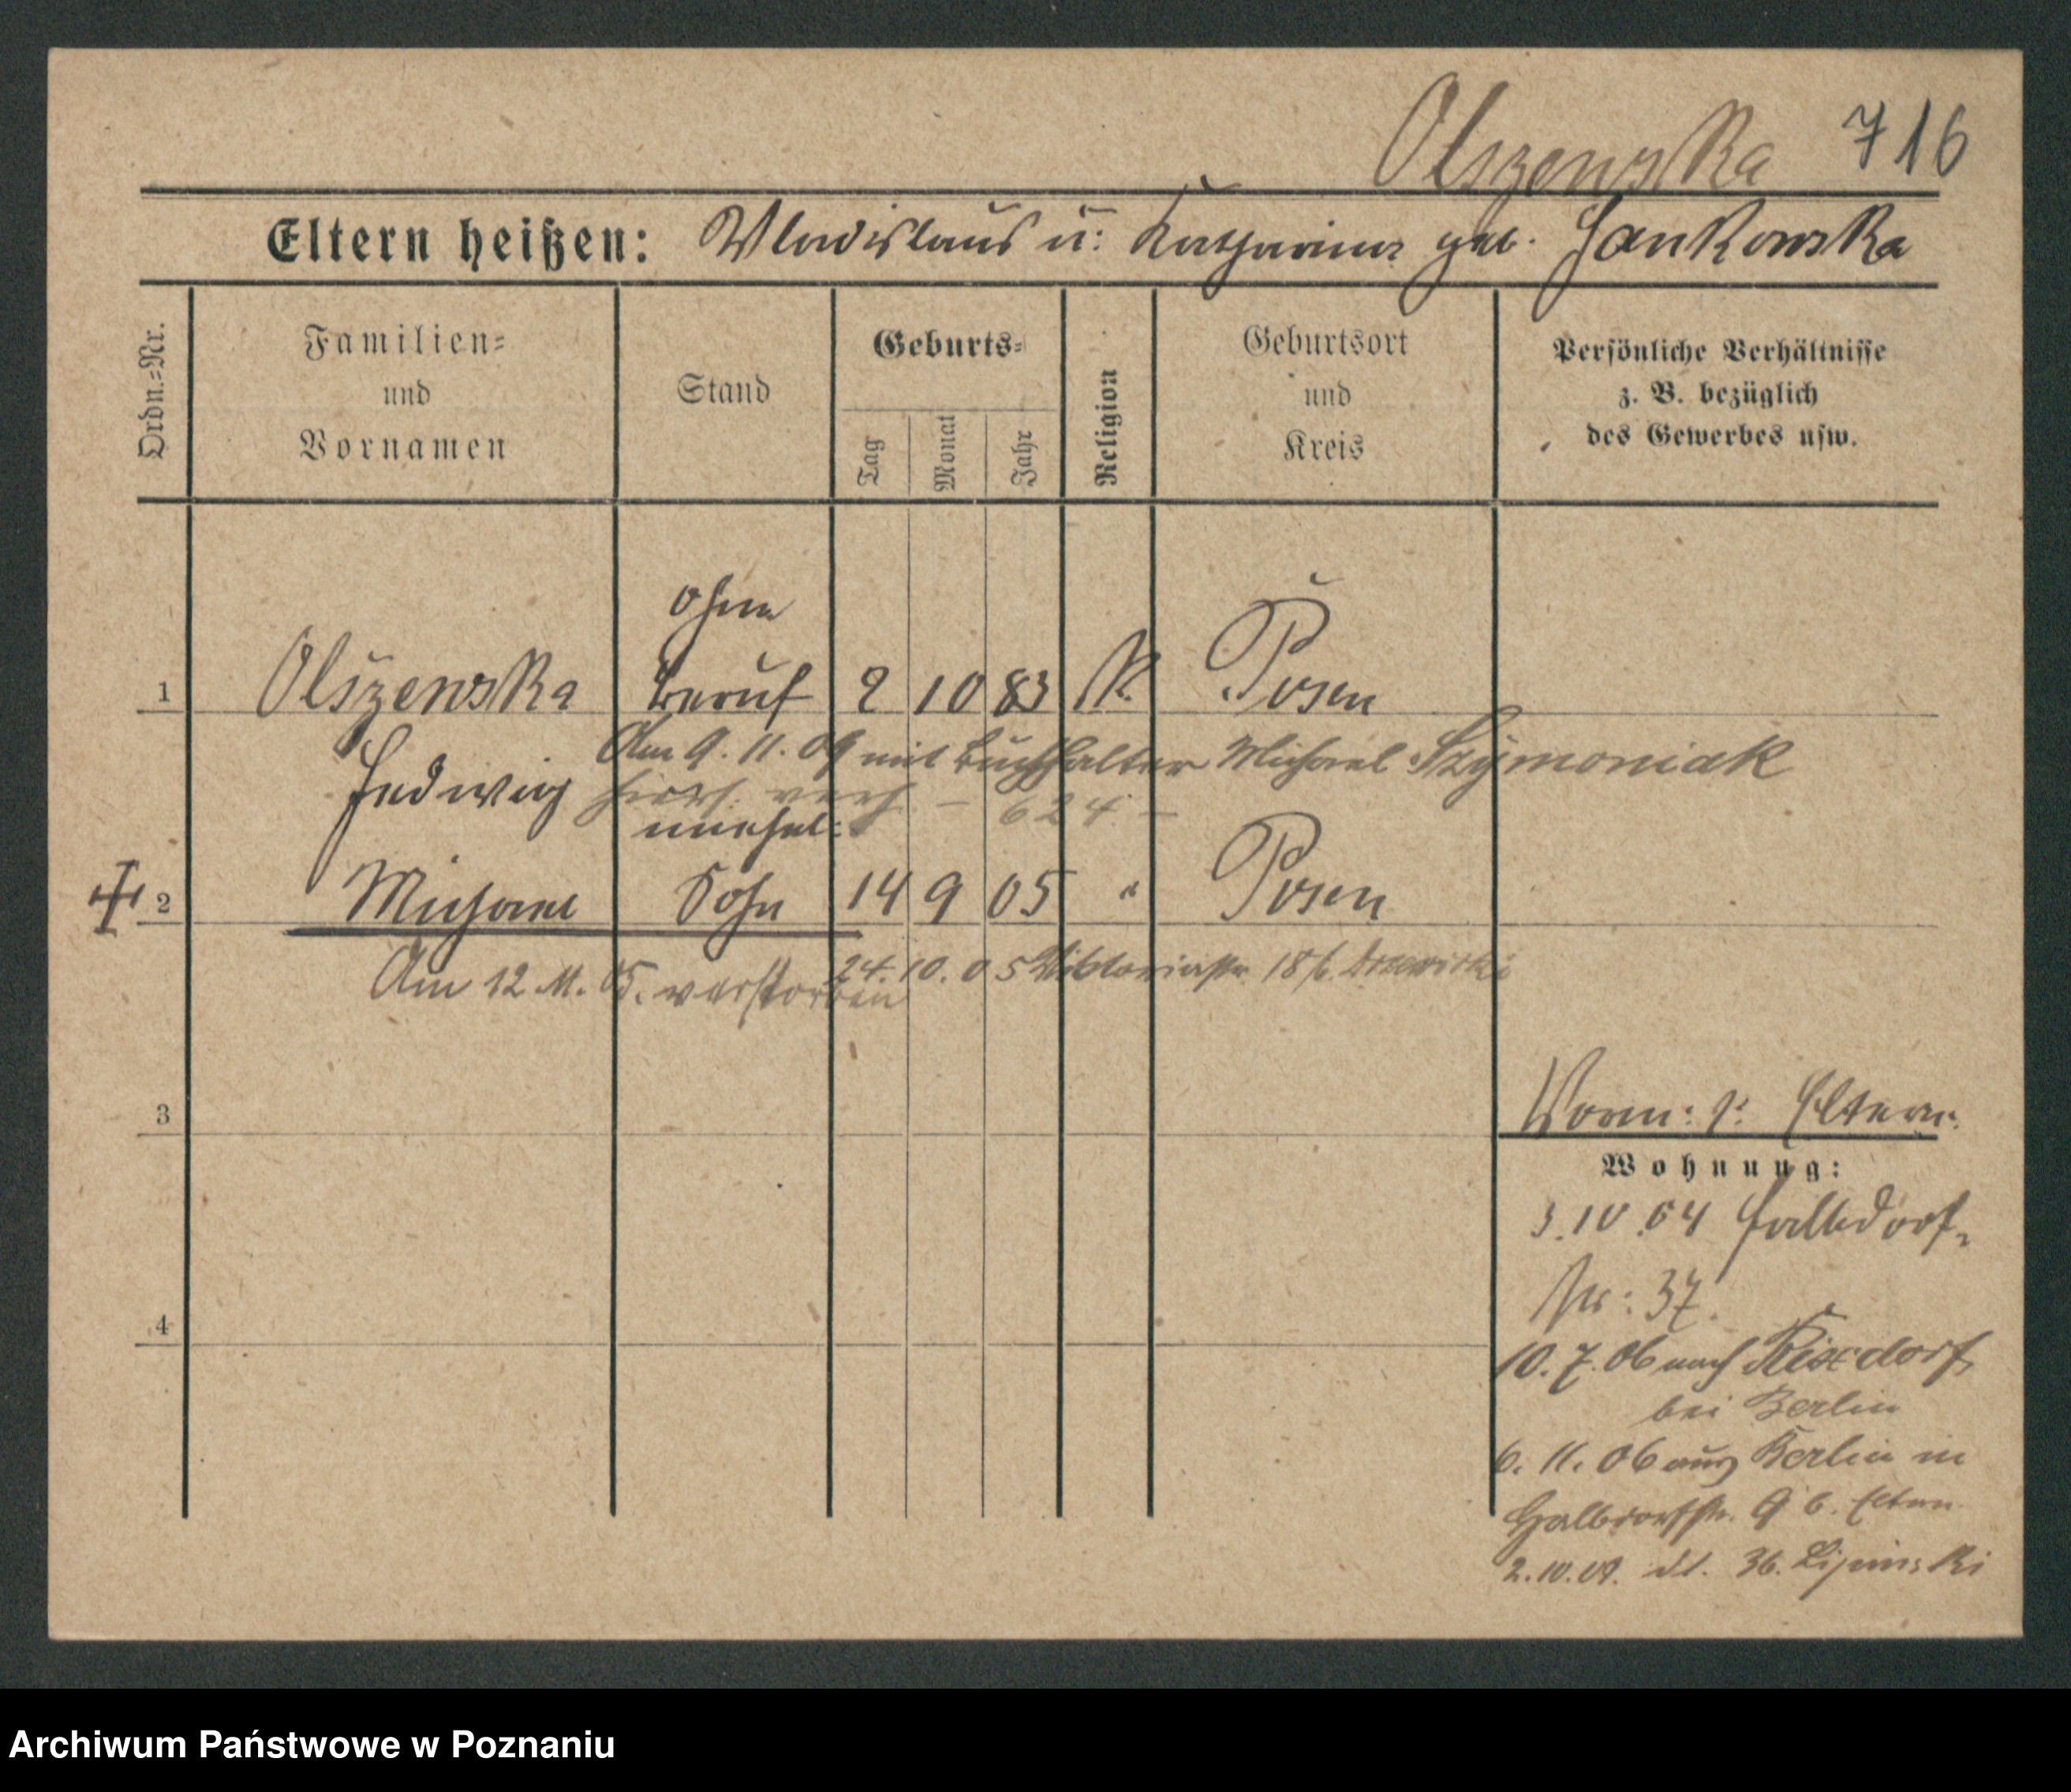 Olszewska 716
Eltern heißen: Wladislaus u: Katharina geb. Jankowska
Ordn.=Nr.
Familien=
und
Vornamen
Stand
Geburts=
Tag
Monat
Jahr
Religion
Geburtsort
und
Kreis
Persönliche Verhältnisse
z. B. bezüglich
des Gewerbes usw.
ohne
1 Olszewska Beruf 2 10 83 K. Posen
Am 9. 11. 09 mit Buchhalter Michael Szymoniak
Hedwig hiers. verh – 624 –
unehel:
2 Michael Sohn 14 9 05 " Posen
24. 10. 05 Viktoriastr. 18 b.
Am 12. 11. 05. verstorben
3
Vorm: s: Eltern.
Wohnung:
3.10.04 Halbdorf-
str: 37.
4
10. 7. 06 nach Rixdorf
bei Berlin
6. 11. 06 aus Berlin in
Halbdorfstr. 9 b. Eltern
2.10.09. dt. 36. Lipinski
Archiwum Państwowe w Poznaniu